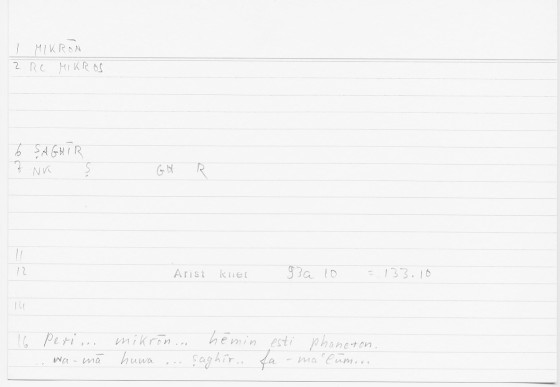 1 MIKRŌN
2 RC MIKROS
6 ṢAGHĪR
7 NK Ṣ GH R
11
12 Arist 93a 10 = 133.10
14
16 Peri... mikrōn... hēmin esti phaneron.
. wa-mā huwa ... ṣaghīr.. fa-ma'lūm...